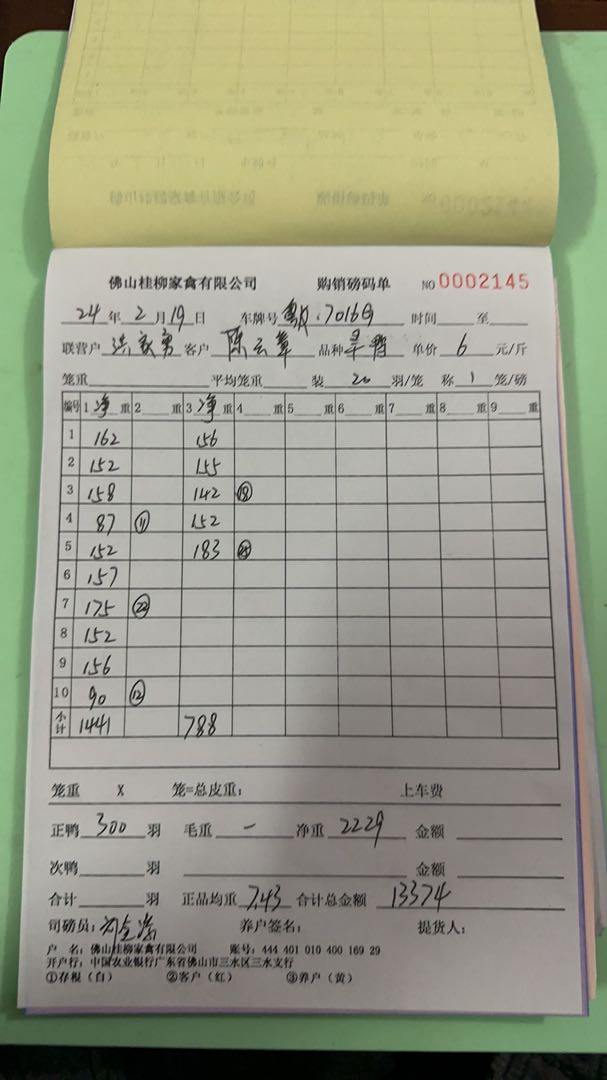 佛山桂柳家禽有限公司 购销磅码单 NO 0002145
24 年 2 月 19 日 车牌号 7016 时间 至
联营户 客户 陈云 品种 单价 6 元/斤
笼重 平均笼重 装 20 羽/笼 称 1 笼/磅
编号 1 净 重 2 重 3 净 重 4 重 5 重 6 重 7 重 8 重 9 重
1 162 156
2 152 155
3 158 142 ⑱
4 87 ⑪ 152
5 152 183
6 157
7 175 ㉒
8 152
9 156
10 90 ⑫
小计 1441 788
笼重 X 笼=总皮重: 上车费
正鸭 300 羽 毛重 — 净重 2229 金额
次鸭 羽 金额
合计 羽 正品均重 7.43 合计总金额 13374
司磅员: 养户签名: 提货人:
户 名: 佛山桂柳家禽有限公司 账号: 444 401 010 400 169 29
开户行: 中国农业银行广东省佛山市三水区三水支行
①存根（白） ②客户（红） ③养户（黄）